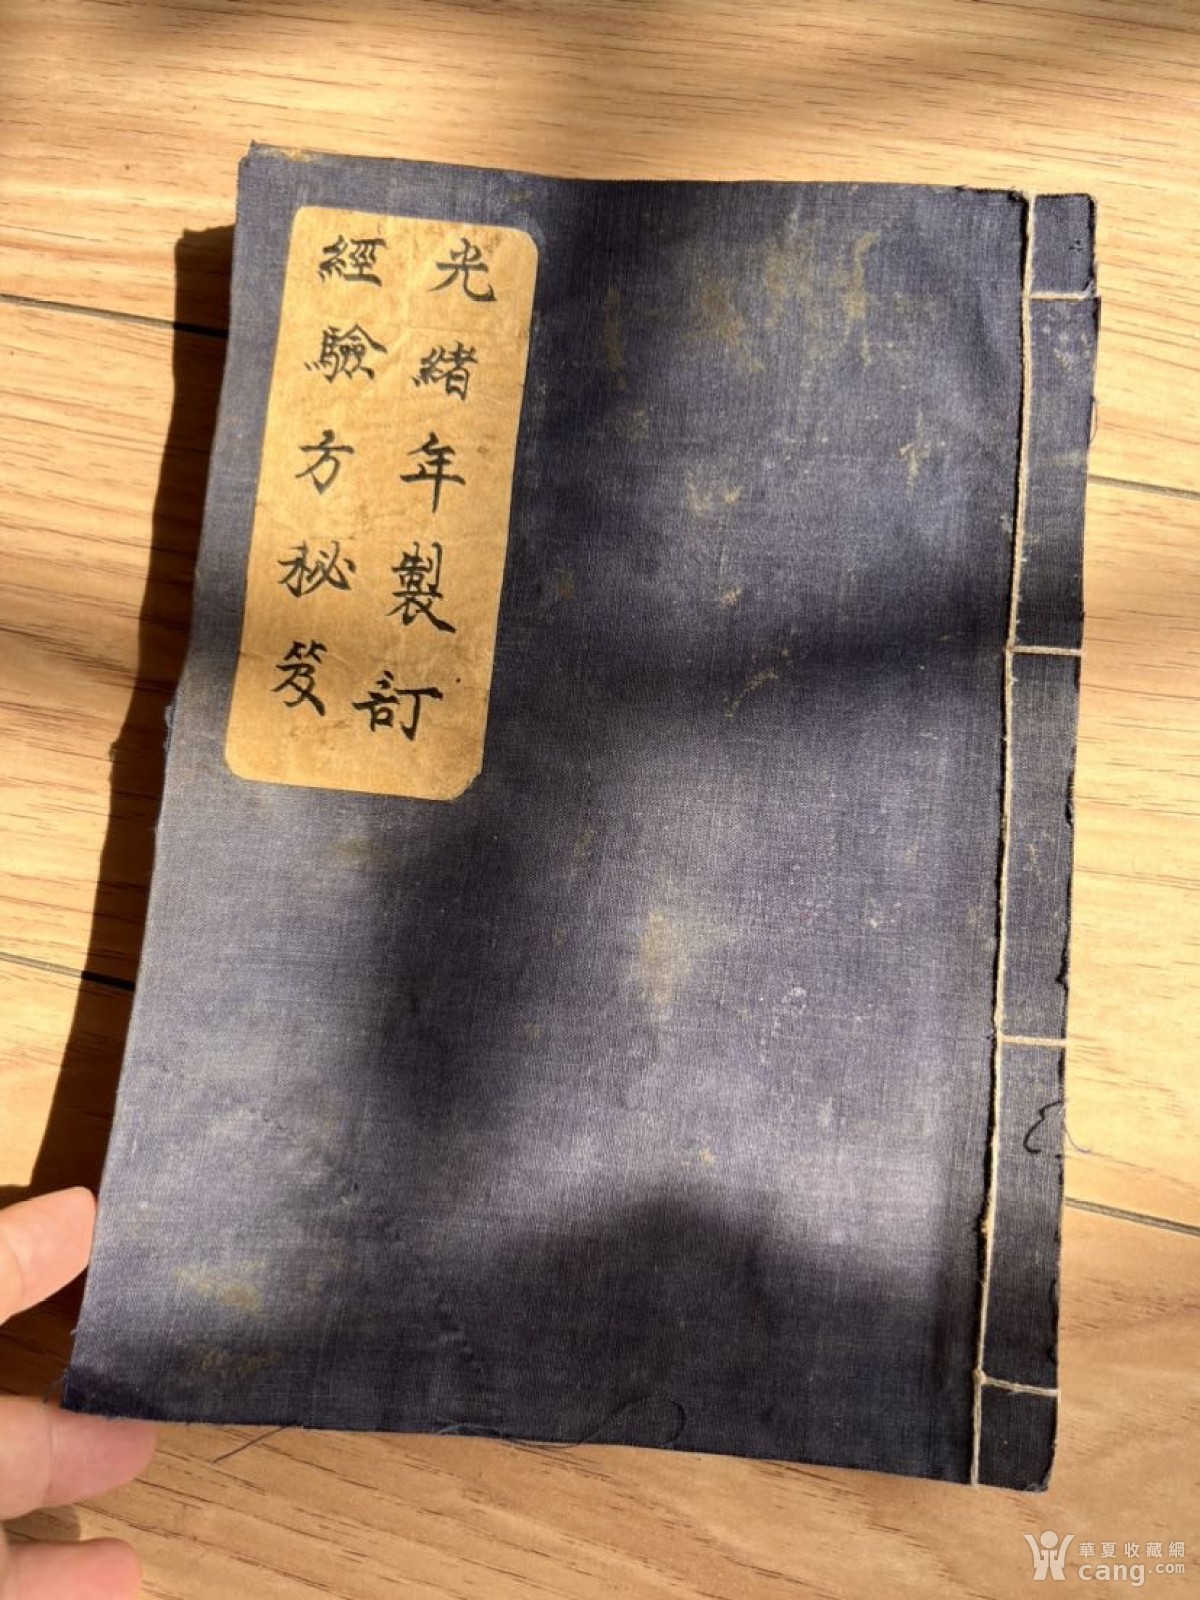 光緒年製訂
經驗方秘笈
華夏收藏網
cang.com